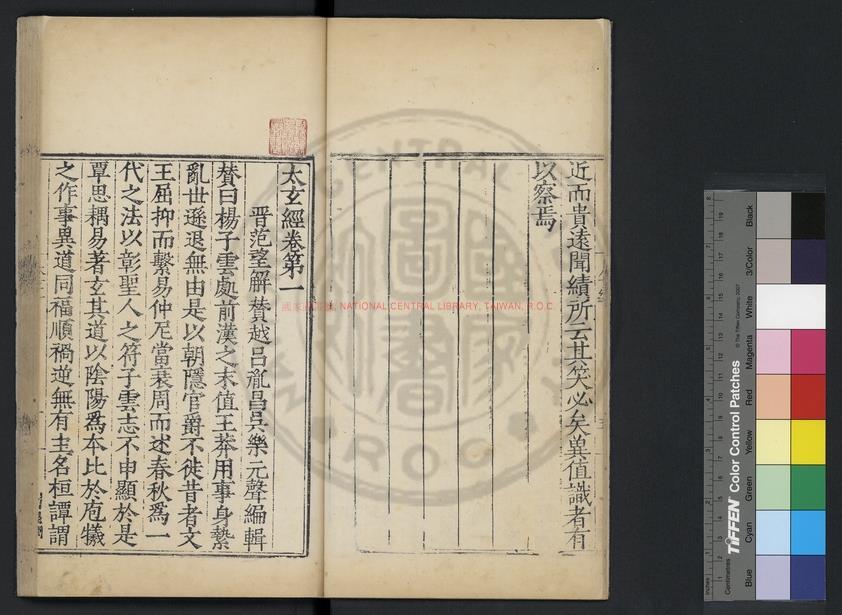 近而貴遠聞績所云其笑必矣異值識者有
以察焉
太玄經卷第一
晉范望解贊越呂胤昌吳樂元聲編輯
贊曰楊子雲處前漢之末值王莽用事身縶
亂世遜退無由是以朝隱官爵不徙昔者文
王屈抑而繫易仲尼當衰周而述春秋爲一
代之法以彰聖人之符子雲志不申顯於是
覃思耦易著玄其道以陰陽爲本比於庖犧
之作事異道同福順禍逆無有主名桓譚謂
國家圖書館 NATIONAL CENTRAL LIBRARY, TAIWAN, R.O.C
NATIONAL CENTRAL LIBRARY
R.O.C
TIFFEN Color Control Patches
© The Tiffen Company, 2007
Blue
Cyan
Green
Yellow
Red
Magenta
White
3/Color
Black
Inches
Centimetres